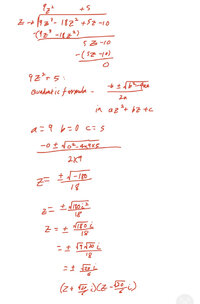 9z² + 5
z-2 ) 9z³ - 18z² + 5z - 10
-(9z³ - 18z²)
5z - 10
-(5z - 10)
0
9z² + 5 :
Quadratic formula - -b ± √b² - 4ac
2a
in az² + bz + c
a = 9 b = 0 c = 5
-0 ± √0² - 4×9×5
2×9
z = ± √-180
18
z = ± √180i²
18
z = ± √180 i
18
= ± √9√20 i
18
= ± √20 i
6
(z + √20/6 i)(z - √20/6 i)